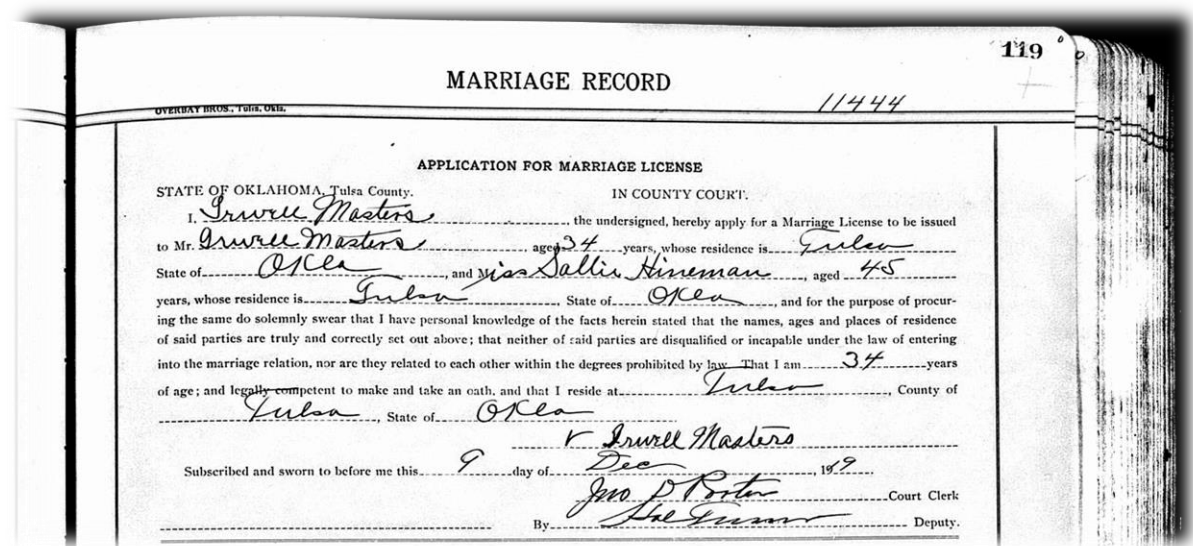 119
MARRIAGE RECORD
OVERBAY BROS., Tulsa, Okla.
11444
APPLICATION FOR MARRIAGE LICENSE
STATE OF OKLAHOMA, Tulsa County. IN COUNTY COURT.
I, Irwell Masters, the undersigned, hereby apply for a Marriage License to be issued
to Mr. Irwell Masters, aged 34 years, whose residence is Tulsa
State of Okla, and Miss Sallie Hineman, aged 45
years, whose residence is Tulsa, State of Okla, and for the purpose of procur-
ing the same do solemnly swear that I have personal knowledge of the facts herein stated that the names, ages and places of residence
of said parties are truly and correctly set out above; that neither of said parties are disqualified or incapable under the law of entering
into the marriage relation, nor are they related to each other within the degrees prohibited by law. That I am 34 years
of age; and legally competent to make and take an oath, and that I reside at Tulsa, County of
Tulsa, State of Okla
Irwell Masters
Subscribed and sworn to before me this 9 day of Dec, 1919
Jno D Porter Court Clerk
By Hal Turner Deputy.